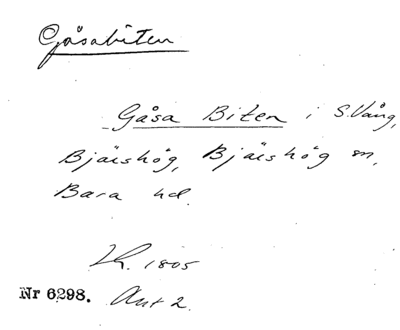 Gåsabiten
Gåsa Biten i S. Vång,
Bjäishög, Bjäishög sn,
Bara hd.
Lk. 1805
Nr 6298. Akt 2.